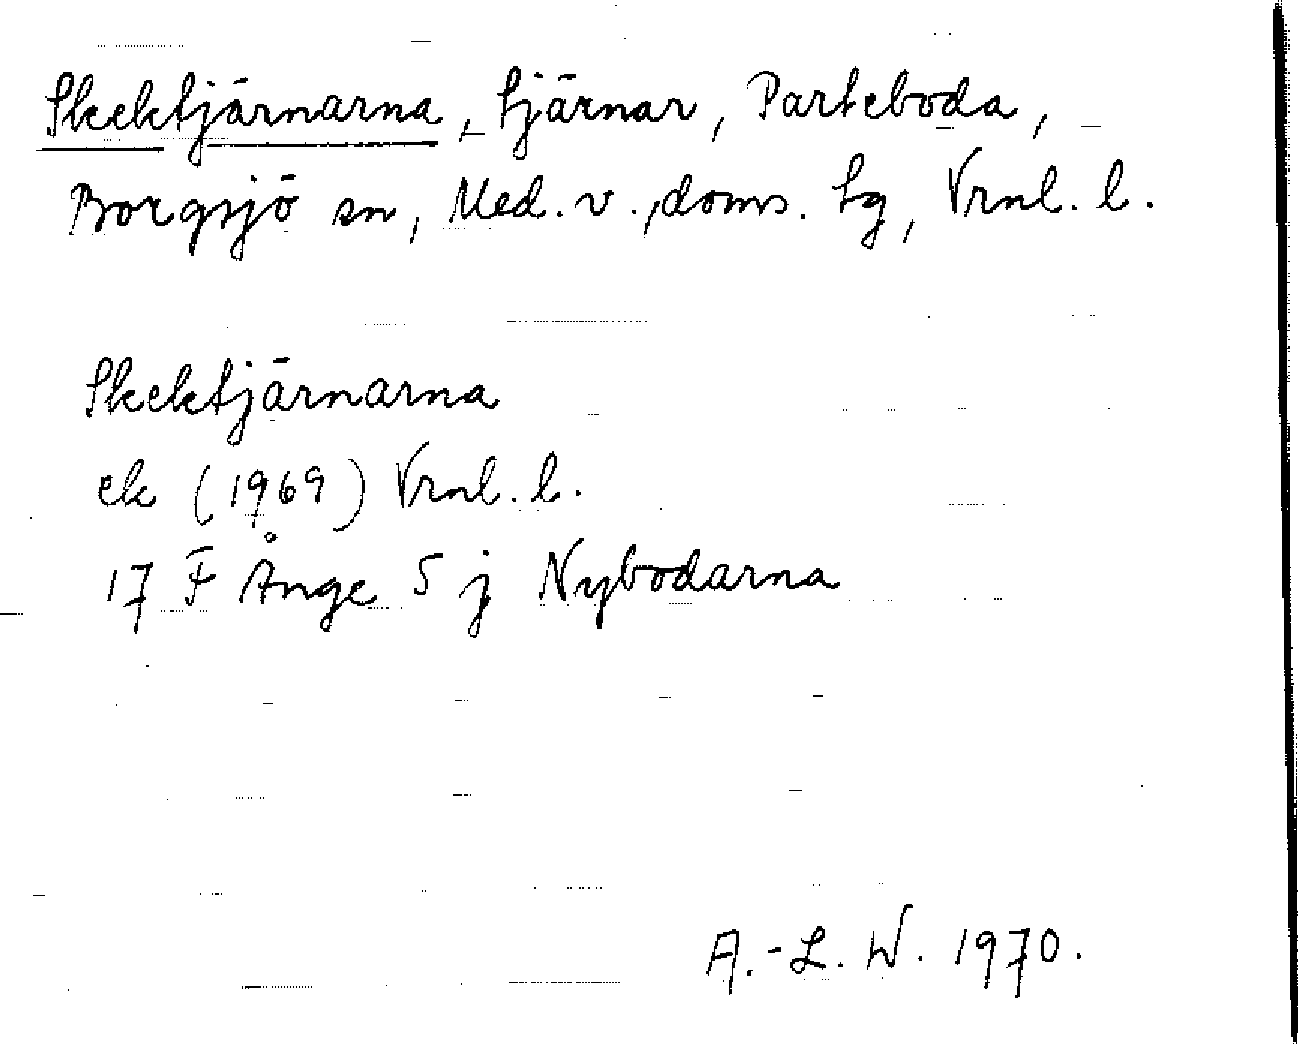 Skektjärnarna, tjärnar, Parteboda,
Borgsjö sn, Med. v., doms. tg, Vrnl. l.
Skektjärnarna
ek (1969) Vrnl. l.
17 F Ånge 5 j Nybodarna
A.-L. W. 1970.